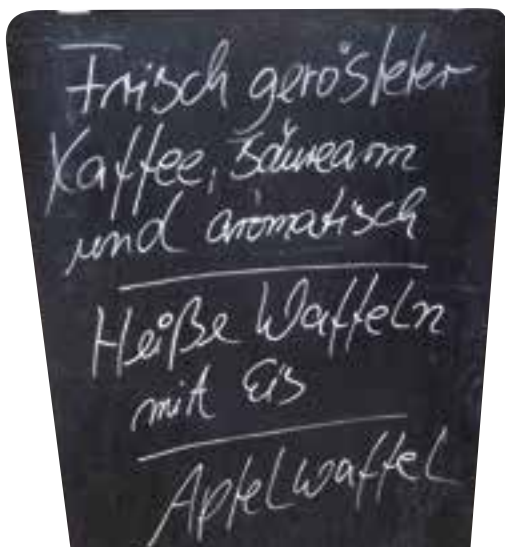 Frisch gerösteter
Kaffee, säurearm
und aromatisch
Heiße Waffeln
mit Eis
Apfelwaffel